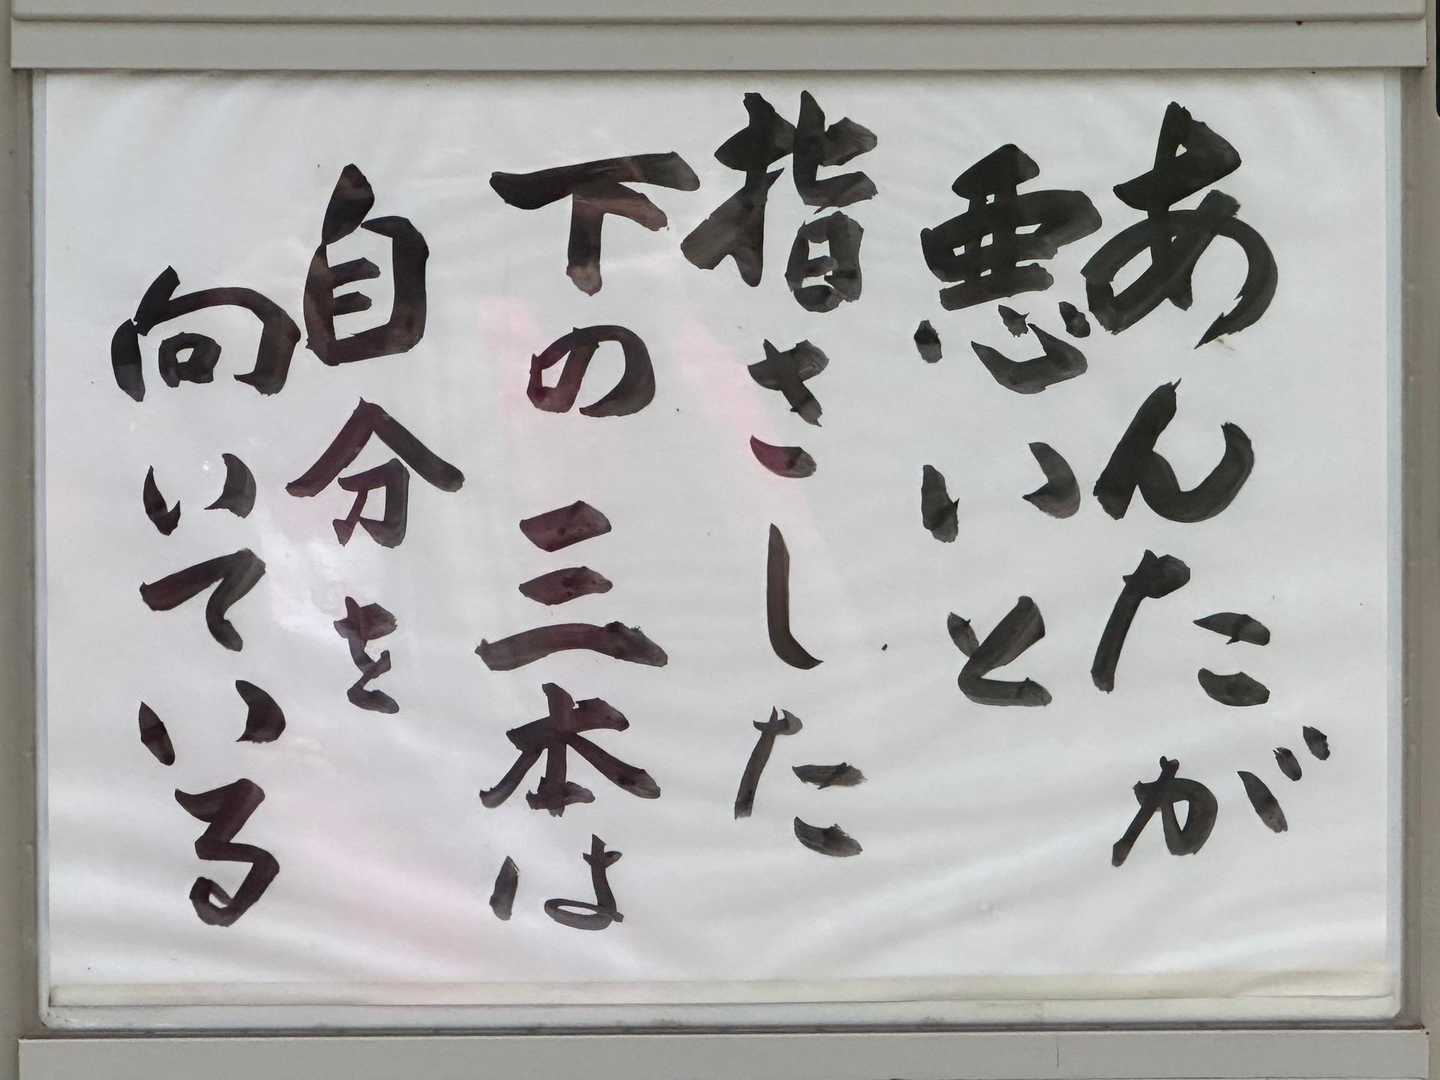 あんたが
悪いと
指さした
下の三本は
自分を
向いている